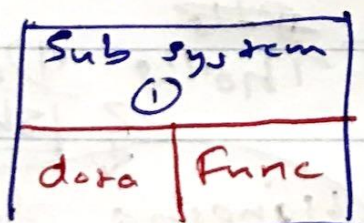 Sub system
①
data Func